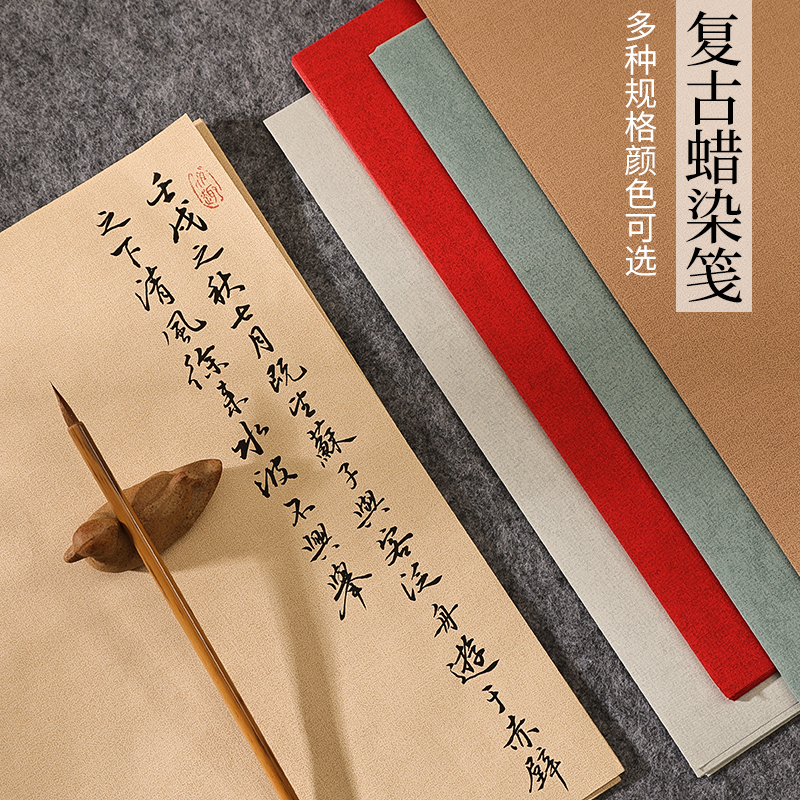 复古蜡染笺
多种规格颜色可选
壬戌之秋七月既望蘇子與客泛舟遊于赤壁
之下清風徐来水波不興舉